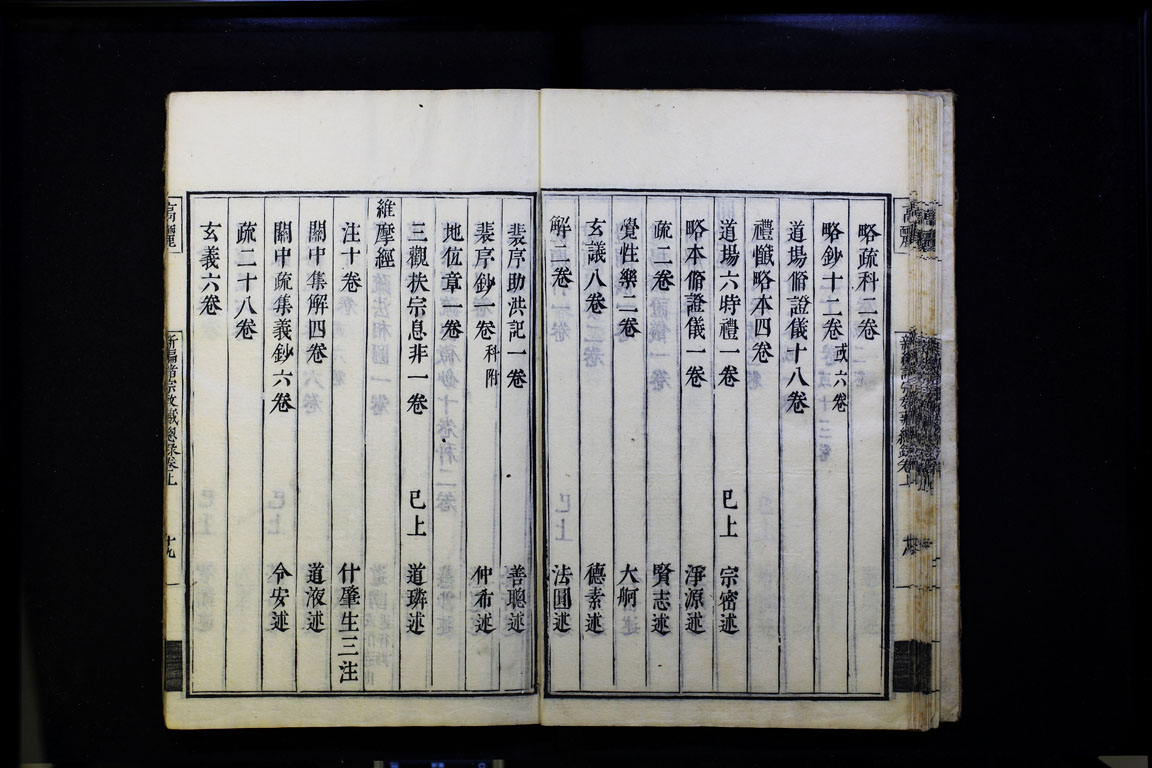 略疏科二卷
略鈔十二卷或六卷
道場脩證儀十八卷
禮懺略本四卷
道場六時禮一卷 已上 宗密述
略本脩證儀一卷 淨源述
疏二卷 賢志述
覺性樂二卷 大舸述
玄議八卷 德素述
解二卷 法圓述
裴序助洪記一卷 善聰述
裴序鈔一卷科附 仲希述
地位章一卷
三觀扶宗息非一卷 已上 道璘述
維摩經
注十卷 什肇生三注
關中集解四卷 道液述
關中疏集義鈔六卷 令安述
疏二十八卷
玄義六卷
高麗
新編諸宗教藏總錄卷上
十九